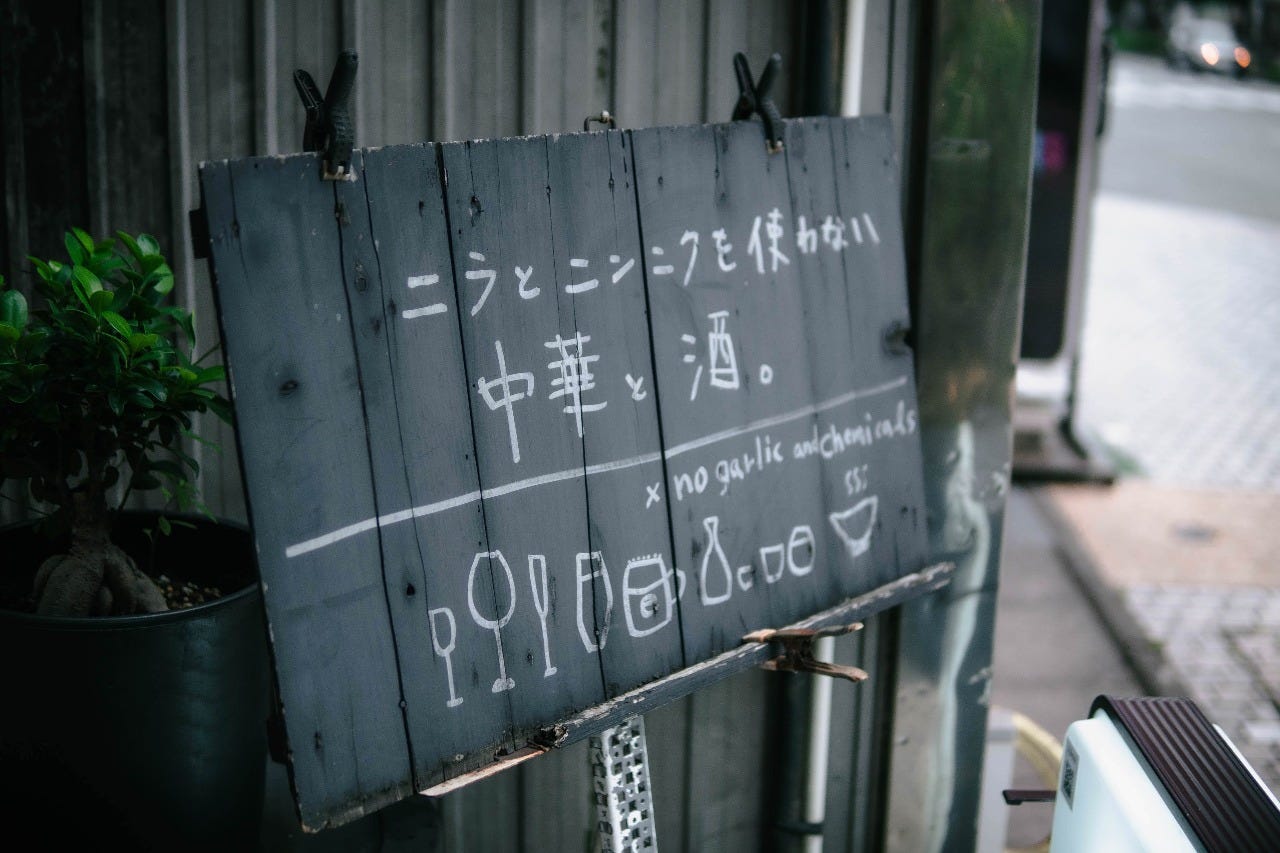 ニラとニンニクを使わない
中華と酒。
x no garlic and chemicals